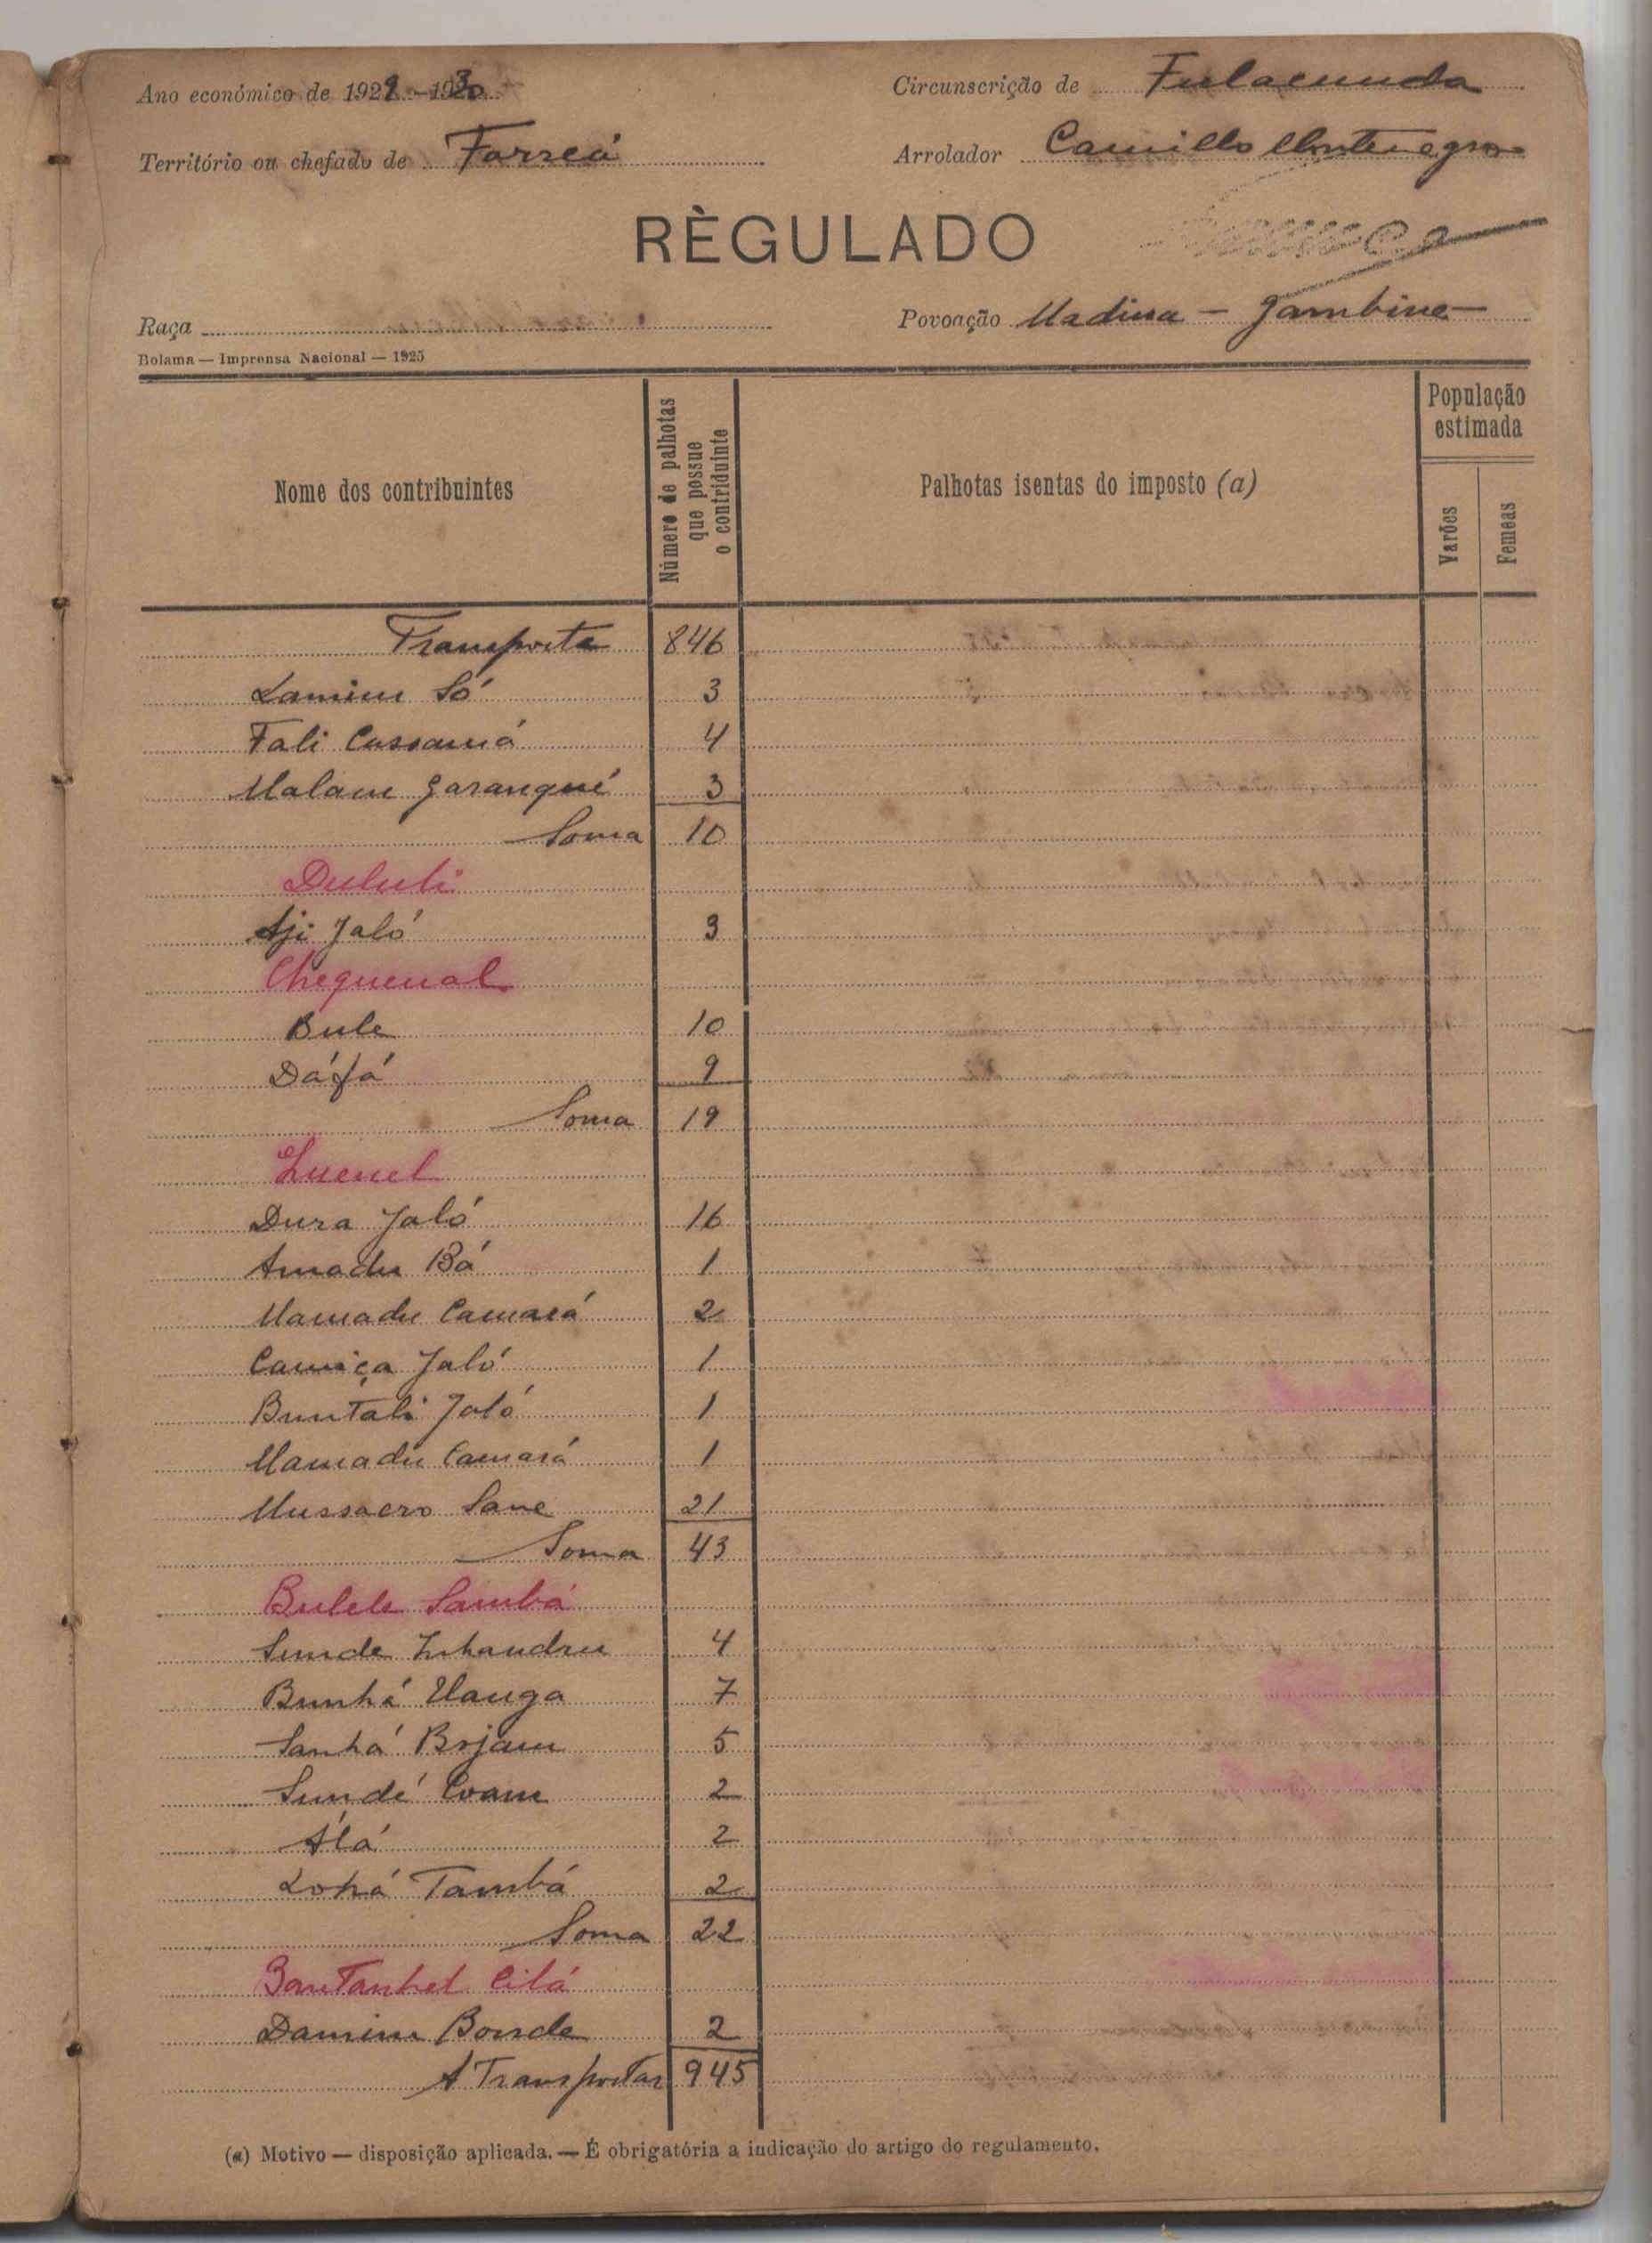 Ano económico de 1929-1930
Circunscrição de Fulacunda
Território ou chefado de Forreá
Arrolador Camillo Montenegro
RÈGULADO
Raça
Povoação Madina - Jambine
Bolama — Imprensa Nacional — 1925
Nome dos contribuintes
Número de palhotas que possue o contriduinte
Palhotas isentas do imposto (a)
População estimada
Varões
Femeas
Transporte 846
Lamine Só 3
Fali Cassamá 4
Malam Garanqué 3
Soma 10
Duluti
Aji Jaló 3
Chequenal
Bule 10
Dáfá 9
Soma 19
Luenel
Dura Jaló 16
Amadu Bá 1
Mamadu Camará 2
Camiça Jaló 1
Buntali Jaló 1
Mamadu Camará 1
Mussacro Sane 21
Soma 43
Bulele Sambá
Sunde 4
Bunhá Uanga 7
Sanhá Bojam 5
Sundé Coam 2
Álá 2
Lohá Tambá 2
Soma 22
Bantanhel Cilá
Damim Bonde 2
A Transportar 945
(a) Motivo — disposição aplicada. — É obrigatória a indicação do artigo do regulamento.